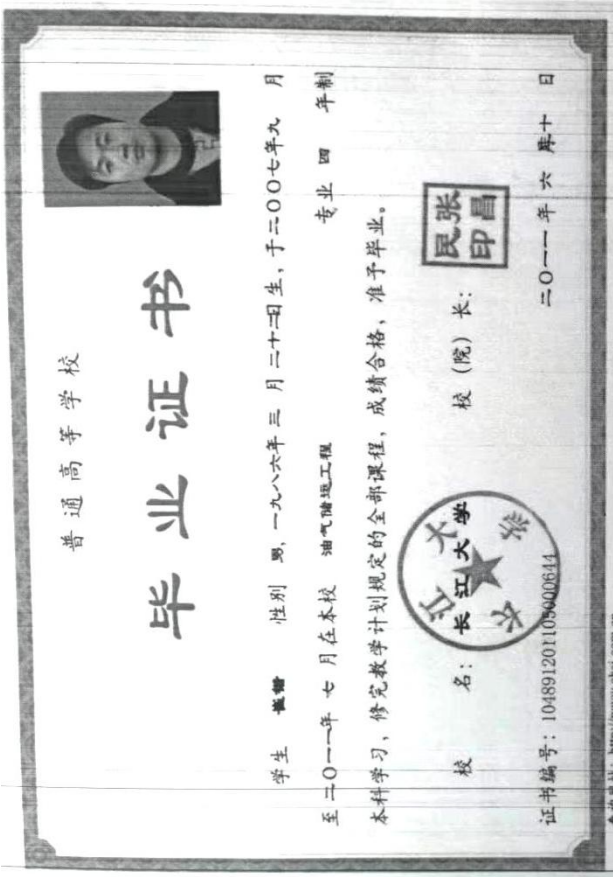 普通高等学校
毕业证书
学生 性别 男，一九八六年三月二十二日生，于二〇〇七年九月
至二〇一一年七月在本校 油气储运工程 专业 四年制
本科学习，修完教学计划规定的全部课程，成绩合格，准予毕业。
校 名：长江大学 校（院）长：
长江大学
张昌民印
证书编号：104891201105000644 二〇一一年 六 月 十 日